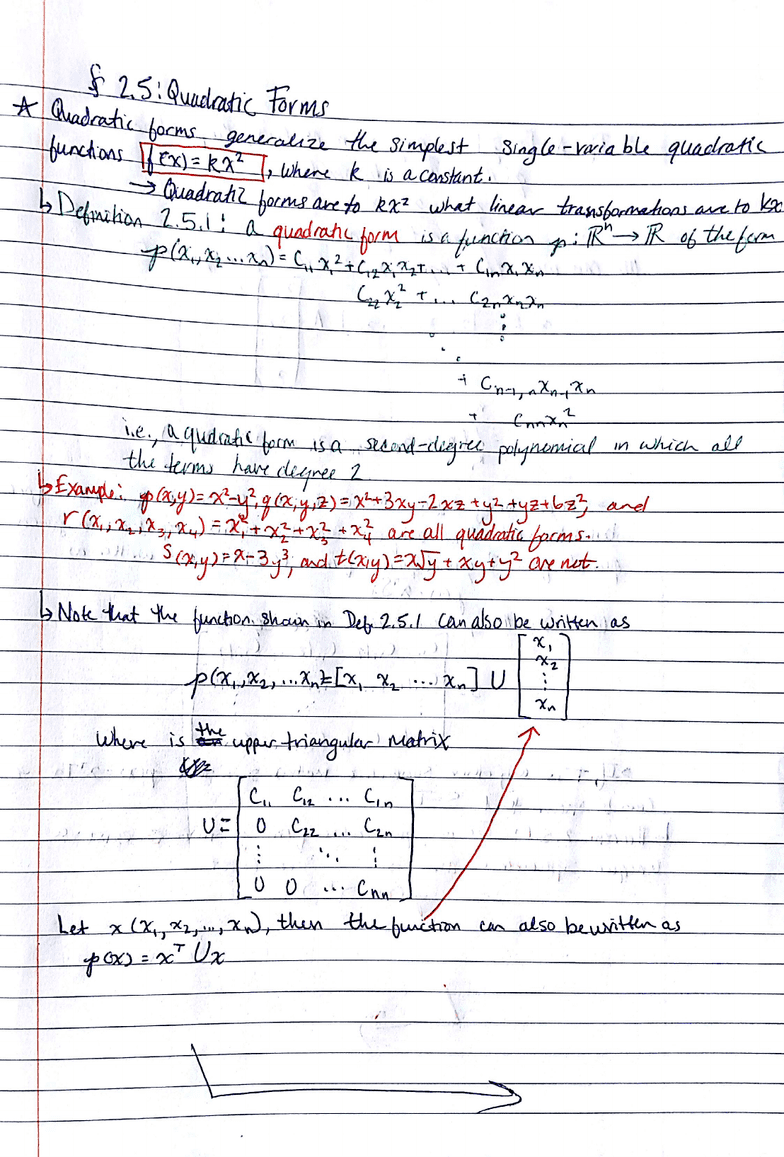 § 2.5: Quadratic Forms
☆ Quadratic forms generalize the simplest single-variable quadratic
functions f(x) = kx², where k is a constant.
→ Quadratic forms are to kx² what linear transformations are to kx
↳ Definition 2.5.1: a quadratic form is a function p: ℝⁿ → ℝ of the form
p(x₁, x₂ ... xₙ) = C₁₁x₁² + C₁₂x₁x₂ + ... + C₁ₙx₁xₙ
C₂₂x₂² + ... C₂ₙxₙxₙ
⋮
⋱
+ Cₙ₋₁,ₙxₙ₋₁xₙ
+ Cₙₙxₙ²
i.e., a qudratic form is a second-degree polynomial in which all
the terms have degree 2
↳ Example: p(x,y) = x²-y², q(x,y,z) = x²+3xy-2xz+y²+yz+6z², and
r(x₁, x₂, x₃, x₄) = x₁²+x₂²+x₃²+x₄² are all quadratic forms.
S(x,y) = x-3y³, and t(x,y) = x√y + xy + y² are not.
↳ Note that the function shown in Def. 2.5.1 can also be written as
p(x₁, x₂, ... xₙ) = [x₁ x₂ ... xₙ] U [x₁ x₂ ⋮ xₙ]
where is the upper triangular matrix
U = [C₁₁ C₁₂ ... C₁ₙ
0 C₂₂ ... C₂ₙ
⋮ ⋱ ⋮
0 0 ... Cₙₙ]
Let x (x₁, x₂, ..., xₙ), then the function can also be written as
p(x) = xᵀUx